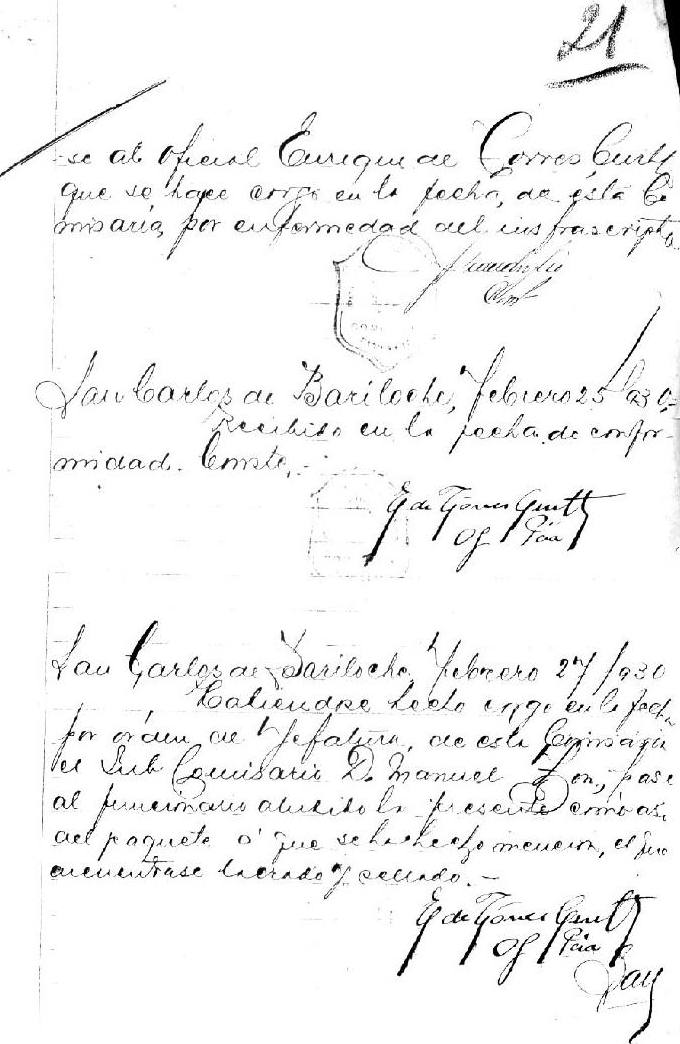 21
se al oficial Enrique de Torres Gurtt
que se hace cargo en la fecha, de ésta Co
misaria, por enfermedad del infrascripto.
San Carlos de Bariloche, febrero 25/930.
Recibido en la fecha de confor-
midad. Conste.
E de Torres Gurtt
Of Pʳⁱᵃ
San Carlos de Bariloche, febrero 27/930
Habiendose hecho cargo en la fecha
por orden de Jefatura, de esta Comisaria
el Sub Comisario D. Manuel pase
al funcionario aludido la presente como asi
del paquete a que se ha hecho mencion, el que
encuentrase lacrado y sellado.-
E de Torres Gurtt
Of